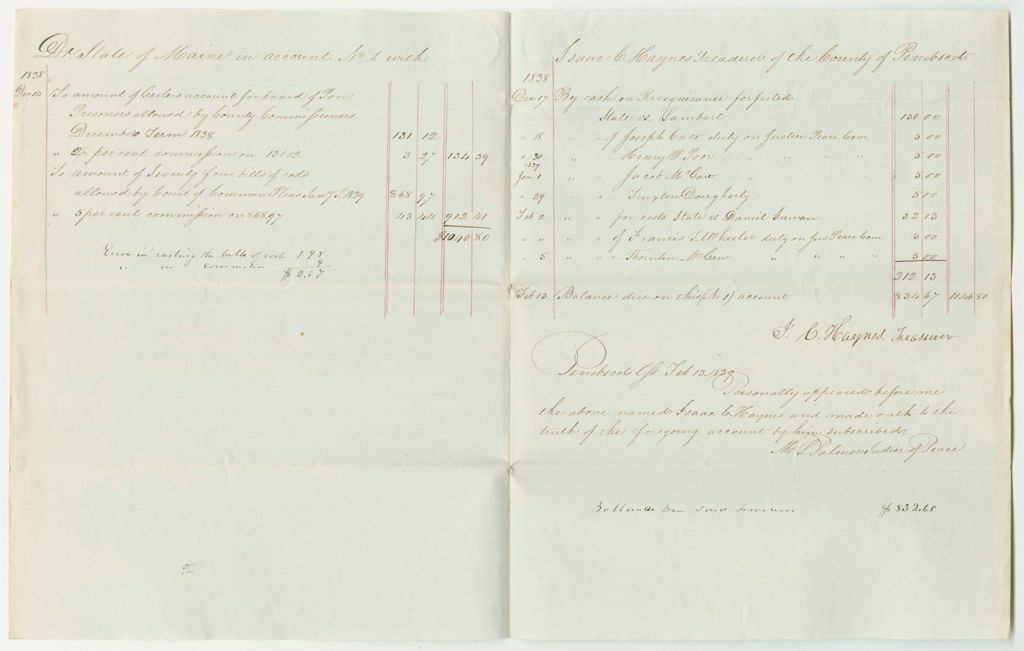 Dr. State of Maine in account No 1. with
1838
Dec 14 To amount of Jailers account for board of Poor
Prisoners allowed by County Commissioners
December Term 1838 131 12
" 2½ per cent commission on 131.12 3 27 134 39
To amount of Seventy four bills of cost
allowed by Court of Common Pleas Jany T. 1839 868 97
" 5 per cent commission on 868.97 43 44 912 41
$1046 80
Error in casting the bills of cost 1.98
" on Commission 9
$ 2.07
Isaac C. Haynes Treasurer of the County of Penobscot
1838
Dec 17 By cash on Recognizance forfeited
State vs. Lambert 150 00
" 18 " " of Joseph Carr duty on Justice Peace Com. 5 00
" 30 " " Henry W. Poor " " " " 5 00
1839
Jan 1 " " Jacob McGaw " " " " 5 00
" 29 " " Dougherty 5 00
Feb 2 " " for costs State vs. Daniel Inman 32 13
" " " " of Francis T. Wheeler duty on Jus Peace Com 5 00
" 5 " " Thornton McGaw " " " " 5 00
212 13
Feb 13. Balance due on this account 834 67 1046 80
I. C. Haynes. Treasurer
Penobscot Ss. Feb 13. 1839
Personally appeared before me
the above named Isaac C. Haynes and made oath to the
truth of the foregoing account by him subscribed.
Justice of Peace
Ballance due said $832.60